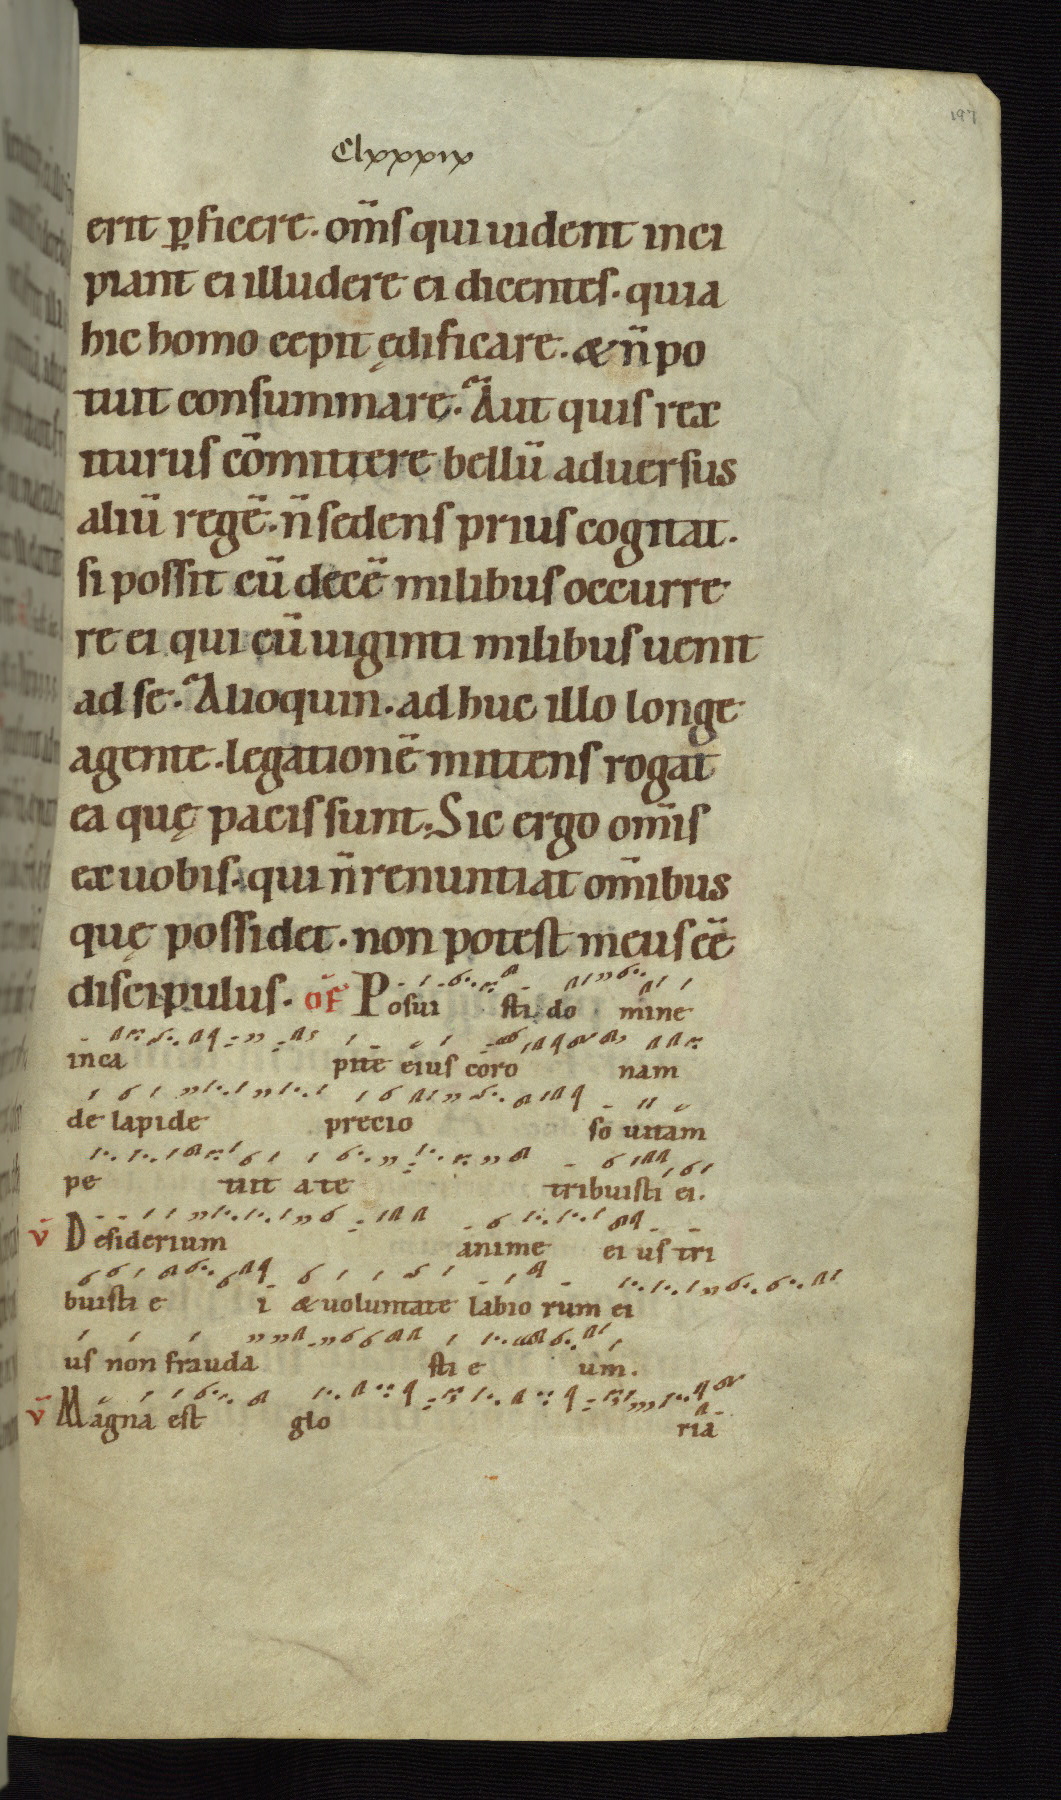 197
Clxxxix
erit ꝑficere. om̄s qui uident inci
piant ei illudere ei dicentes. quia
hic homo cepit ędificare. & n̄ po
tuit consummare. Aut quis rex
iturus cōmittere bellū aduersus
aliū regē. n̄ sedens prius cogitat.
si possit cū decē milibus occurre
re ei qui cū uiginti milibus uenit
ad se. Alioquin. ad huc illo longe
agente. legationē mittens rogat
ea quę pacis sunt. Sic ergo om̄is
ex uobis. qui n̄ renuntiat om̄ibus
quę possidet. non potest meus eē
discipulus. of̄ Posui sti do mine
in ca pite eius coro nam
de lapide precio so uitam
pe tiit a te tribuisti ei.
v̄ Desiderium anime ei us tri
buisti e i & uoluntate labio rum ei
us non frauda sti e um.
v̄ Magna est glo ria